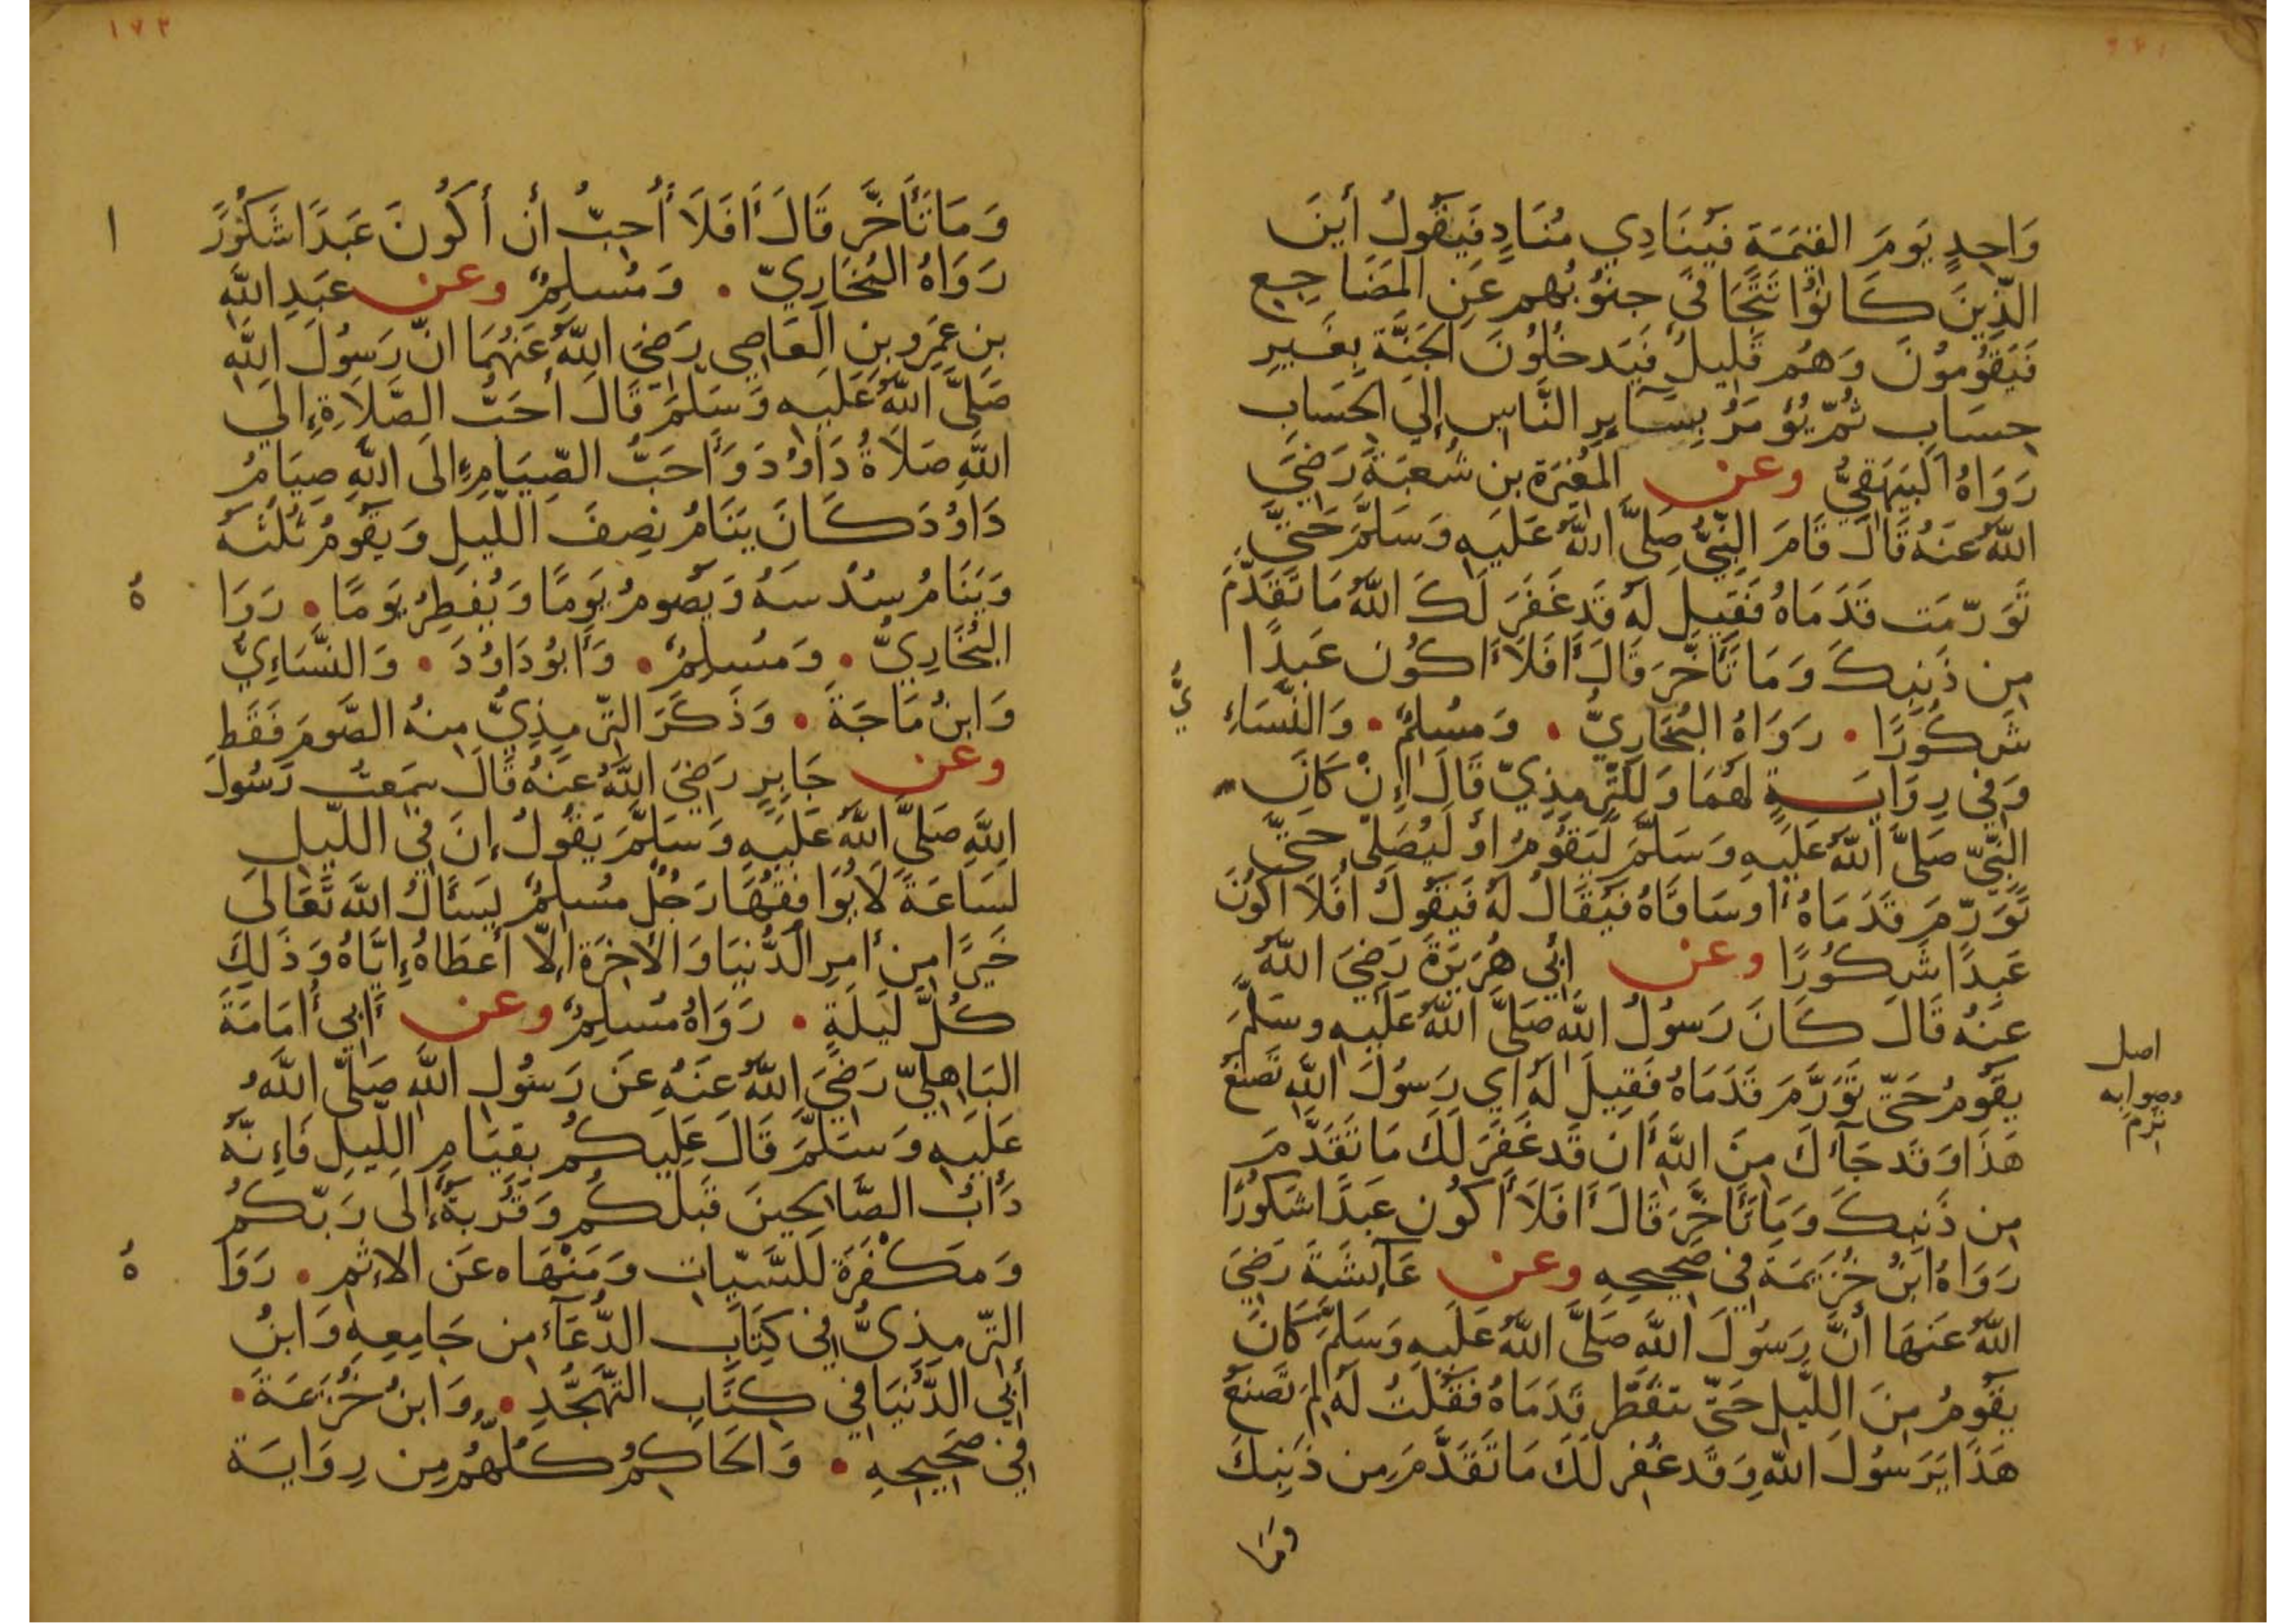 وَاحِدٍ يَومَ القِيٰمَةِ فَيُنَادِي مُنَادٍ فَيَقُولُ أَينَ
الَّذِينَ كَانُوا تَتَجَافَى جنُوبُهم عَنِ المَضَاجِعِ
فَيَقُومُونَ وَهُم قَلِيلٌ فَيَدخُلُونَ الجَنَّةَ بِغَيرِ
حِسَابٍ ثُمّ يُؤمَرُ بِسَآيِرِ النَّاسِ إِلَى الحَسَابِ
رَوَاهُ البَيهَقِيُّ وعن المُغيرَة بن شُعبَةَ رَضِيَ
اللّٰهُ عَنهُ قَالَ قَامَ النَّبِيُّ صَلَّى اللّٰهُ عَلَيهِ وَسَلَّمَ حَتَّى
تَوَرَّمَت قَدَمَاهُ فَقِيلَ لَهُ قَد غَفَرَ لَكَ اللّٰهُ مَا تَقَدَّمَ
مِن ذَنبِكَ وَمَا تَأَخَّرَ قَالَ أَفَلَا أَكُون عَبدًا
شَكُورًا • رَوَاهُ البُخَارِيُّ • وَمُسلِمٌ • وَالنَّسَاءِ
يُّ
وَفِي رِوَايَةٍ لَهُمَا وَلِلتِّرمِذِيّ قَالَ إِنْ كَانَ
النَّبِيّ صَلَّى اللّٰهُ عَلَيهِ وَسَلَّمَ لَيَقُومُ اوْ لَيُصَلِّي حَتَّى
تَوَرَّمَ قَدَمَاهُ أو سَاقَاهُ فَيُقَالُ لَهُ فَيَقُولُ أَفَلَا أَكُونَ
عَبدًا شَكُورًا وعن أبِي هُرَيرَةَ رَضِيَ اللّٰهُ
عَنهُ قَالَ كَانَ رَسُولُ اللّٰهِ صَلَّى اللّٰهُ عَلَيهِ وسَلَّمَ
يَقُومُ حَتّى تَوَرَّمَ قَدَمَاهُ فَقِيلَ لَهُ أي رَسُولَ اللّٰهِ تَصنَعُ
هَذَا وَقَد جَآءَكَ مِنَ اللّٰهِ أَن قَد غَفَرَ لَكَ مَا تَقَدَّمَ
مِن ذَنبِكَ وَمَا تَأَخَّرَ قَالَ أَفَلَا أَكُون عَبدًا شَكُورًا
رَوَاهُ ابنُ خُزَيمَةَ فِي صَحِيحِهِ وعن عَآيِشَةَ رَضِيَ
اللّٰهُ عَنهَا أَنَّ رَسُولَ اللّٰهِ صَلَّى اللّٰهُ عَلَيهِ وَسَلَّمَ كَانَ
يَقُومُ مِنَ اللَّيلِ حَتّى تتفَطَّر قَدَمَاهُ فَقُلتُ لَهُ لِمَ تَصنَعُ
هَذَا يَرَسُولَ اللّٰهِ وَقَد غُفِر لَكَ مَا تَقَدَّمَ مِن ذَنبِكَ
وَمَا
اصل
وصوابه
تَرِمَ
١٧٢
وَمَا تَأَخَّر قَالَ أَفَلَا أُحِبُّ أَن أَكُونَ عَبدًا شَكُورً
ا
رَوَاهُ البُخَارِيّ • وَمُسلِمٌ وعن عَبدِ اللّٰهِ
بنِ عَمرِو بنِ العَاصِي رَضِيَ اللّٰهُ عَنهُمَا انّ رَسُولَ اللّٰهِ
صَلَّى اللّٰهُ عَلَيهِ وَسَلَّمَ قَالَ أَحَبُّ الصَّلَاةِ إلَى
اللّٰهِ صَلَاةُ دَاوُدَ وَأَحَبُّ الصِّيَامِ إلَى اللّٰهِ صِيَامُ
دَاوُدَ كَانَ يَنَامُ نِصفَ اللَّيلِ وَيَقُومُ ثُلُثَهُ
وَيَنَامُ سُدُسَهُ وَيَصُومُ يَومًا وَيُفطِرُ يَومًا • رَوَا
هُ
البُخَارِيُّ • وَمُسلِمٌ • وَأَبُو دَاوُدَ • وَالنَّسَاءِيُّ
وَابنُ مَاجَةَ • وَذَكَرَ التِّرمِذِيُّ مِنهُ الصَّومَ فَقَط
وعن جَابِرٍ رَضِيَ اللّٰهُ عَنهُ قَالَ سَمِعتُ رَسُولَ
اللّٰهِ صَلَّى اللّٰهُ عَلَيهِ وَسَلَّمَ يَقُولُ إنَ فِي اللَّيلِ
لَسَاعَةً لَا يُوَافِقُهَا رَجُلٌ مُسلِمٌ يَسأَلُ اللّٰهَ تَعَالَى
خَيرًا مِن أَمرِ الدُّنيَا وَالأخِرَةِ إلّا أَعطَاهُ إيَّاهُ وَذَلِكَ
كُلَّ لَيلَةٍ • رَوَاهُ مُسلِمٌ وعن أَبي أُمَامَةَ
البَاهِلِيّ رَضِيَ اللّٰهُ عَنهُ عَن رَسُولِ اللّٰهِ صَلَّى اللّٰهُ
عَلَيهِ وَسَلَّمَ قَالَ عَلَيكُم بِقيَامِ اللَّيلِ فَإِنَّهُ
دَأبُ الصَّالِحِينَ قَبلَكُم وَقُربَةٌ إلَى رَبّكُم
وَمَكْفَرَة لِلسَّيّاتِ وَمَنْهَاه عَن الإثمِ • رَوَا
هُ
التِّرمِذِيُّ فِي كِتَابِ الدُّعَآءِ مِن جَامِعِهِ وَابنُ
أَبِي الدُّنيَا فِي كِتَابِ التَّهَجُّدِ • وَابنُ خُزَيمَةَ •
فِي صَحِيحِهِ • وَالحَاكِمُ كُلُّهُم مِن رِوَايَة